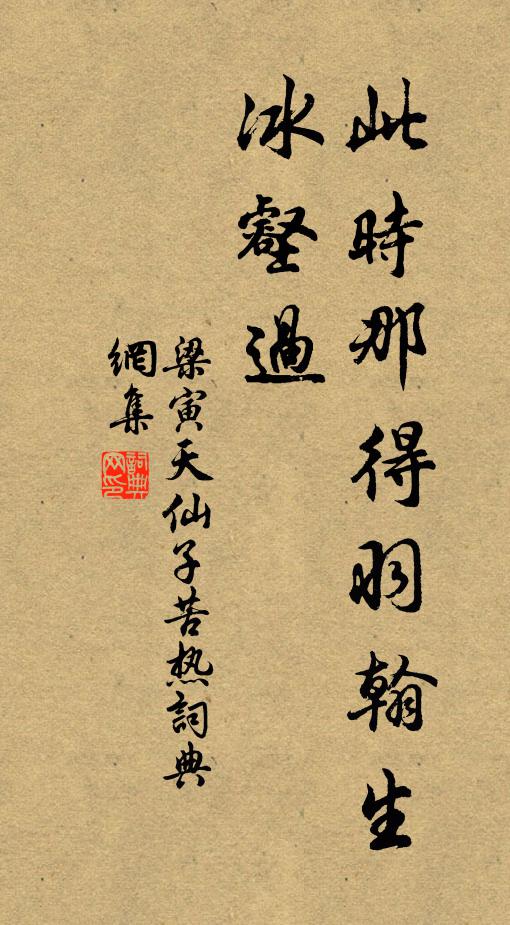 此時那得羽翰生
冰壑過
梁寅天仙子苦热詞典
網集
詞典网印